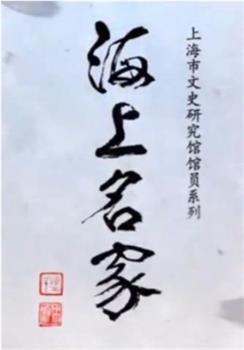 上海市文史研究馆馆员系列
海上名家